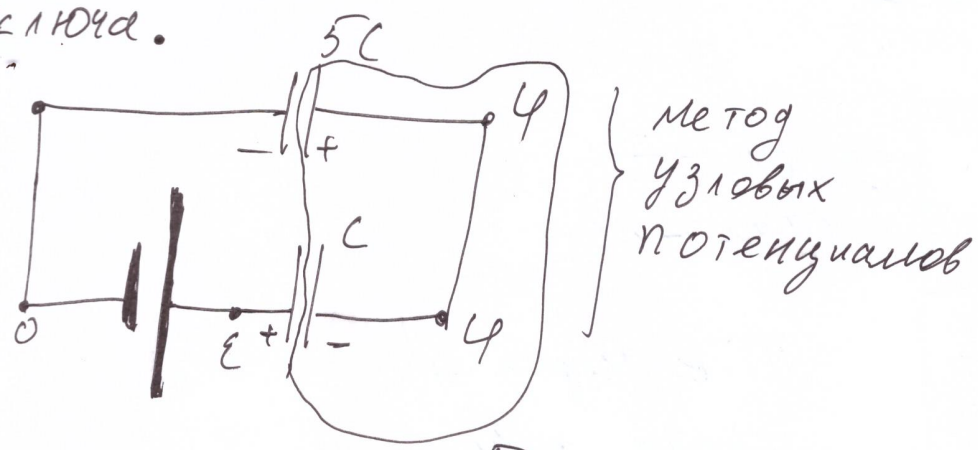 ключа.
5С
φ
- +
метод
узловых
потенциалов
С
0
ε + -
φ